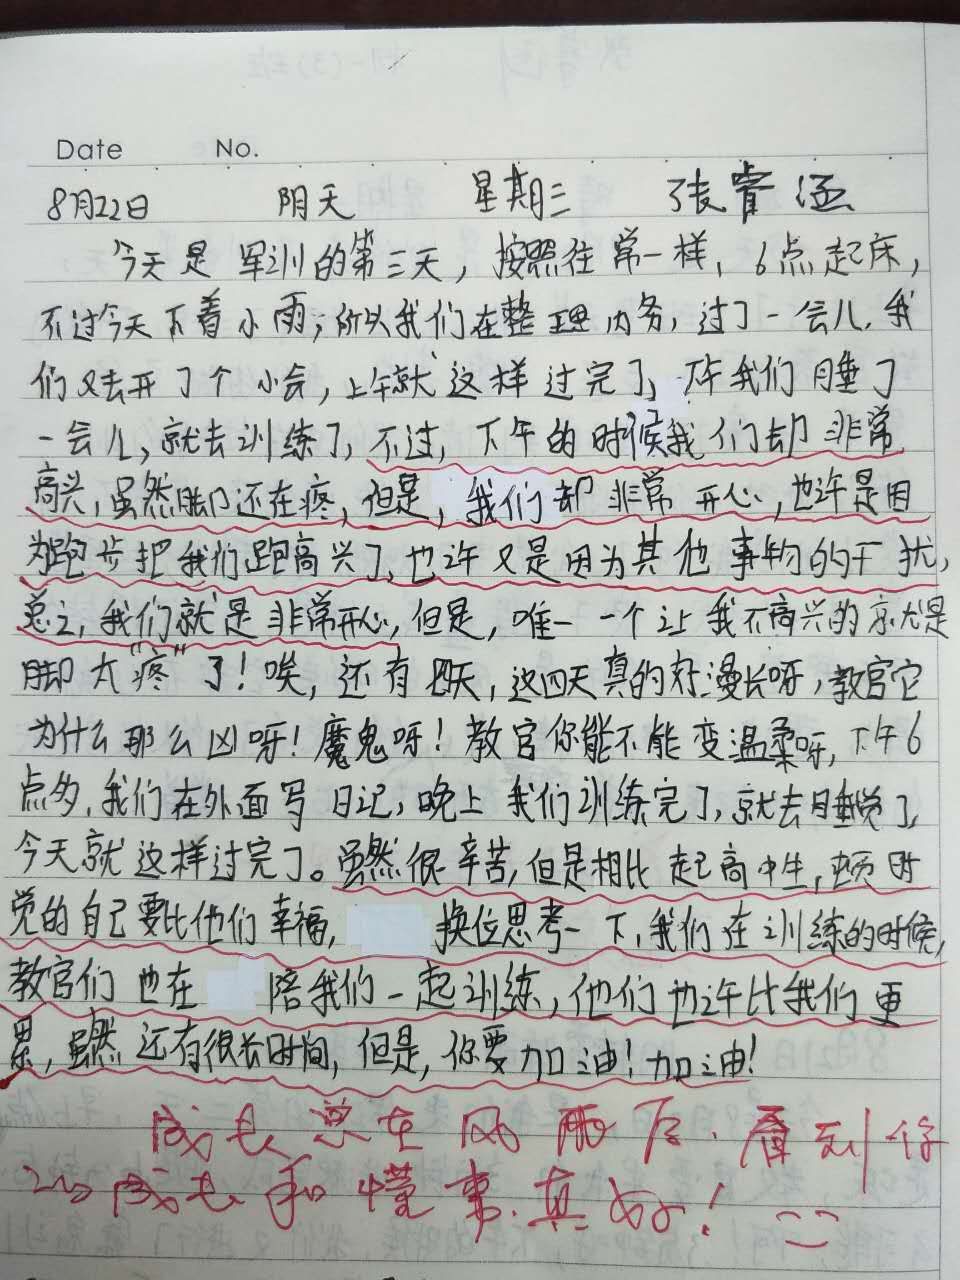 Date No.
8月22日 阴天 星期三 张睿涵
今天是军训的第三天，按照往常一样，6点起床，
不过今天下着小雨，所以我们在整理内务，过了一会儿，我
们又去开了个小会，上午就这样过完了，下午我们睡了
一会儿，就去训练了，不过，下午的时候我们却非常
高兴，虽然脚还在疼，但是，我们却非常开心，也许是因
为跑步把我们跑高兴了，也许又是因为其他事物的干扰，
总之，我们就是非常开心，但是，唯一一个让我不高兴的就是
脚太"疼"了！唉，还有四天，这四天真的好漫长呀，教官它
为什么那么凶呀！魔鬼呀！教官你能不能变温柔呀，下午6
点多，我们在外面写日记，晚上我们训练完了，就去睡觉了，
今天就这样过完了。虽然很辛苦，但是相比起高中生，顿时
觉的自己要比他们幸福，换位思考一下，我们在训练的时候，
教官们也在陪我们一起训练，他们也许比我们更
累，虽然还有很长时间，但是，你要加油！加油！
成长总在风雨后，看到你
的成长和懂事，真好！